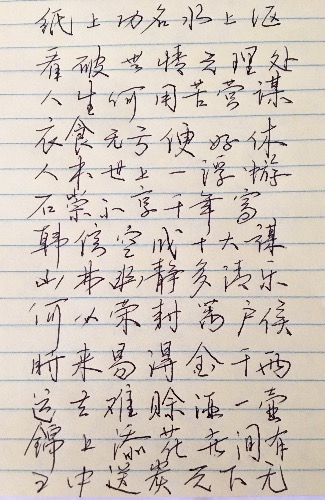 纸上功名水上沤
看破世情无理处
人生何用苦营谋
衣食无亏便好休
人来世上一浮游
石崇不享千年富
韩信空成十大谋
山林幽静多清乐
何必荣封萬户侯
时来易得金千两
运去难赊酒一壶
錦上添花世间有
雪中送炭天下无